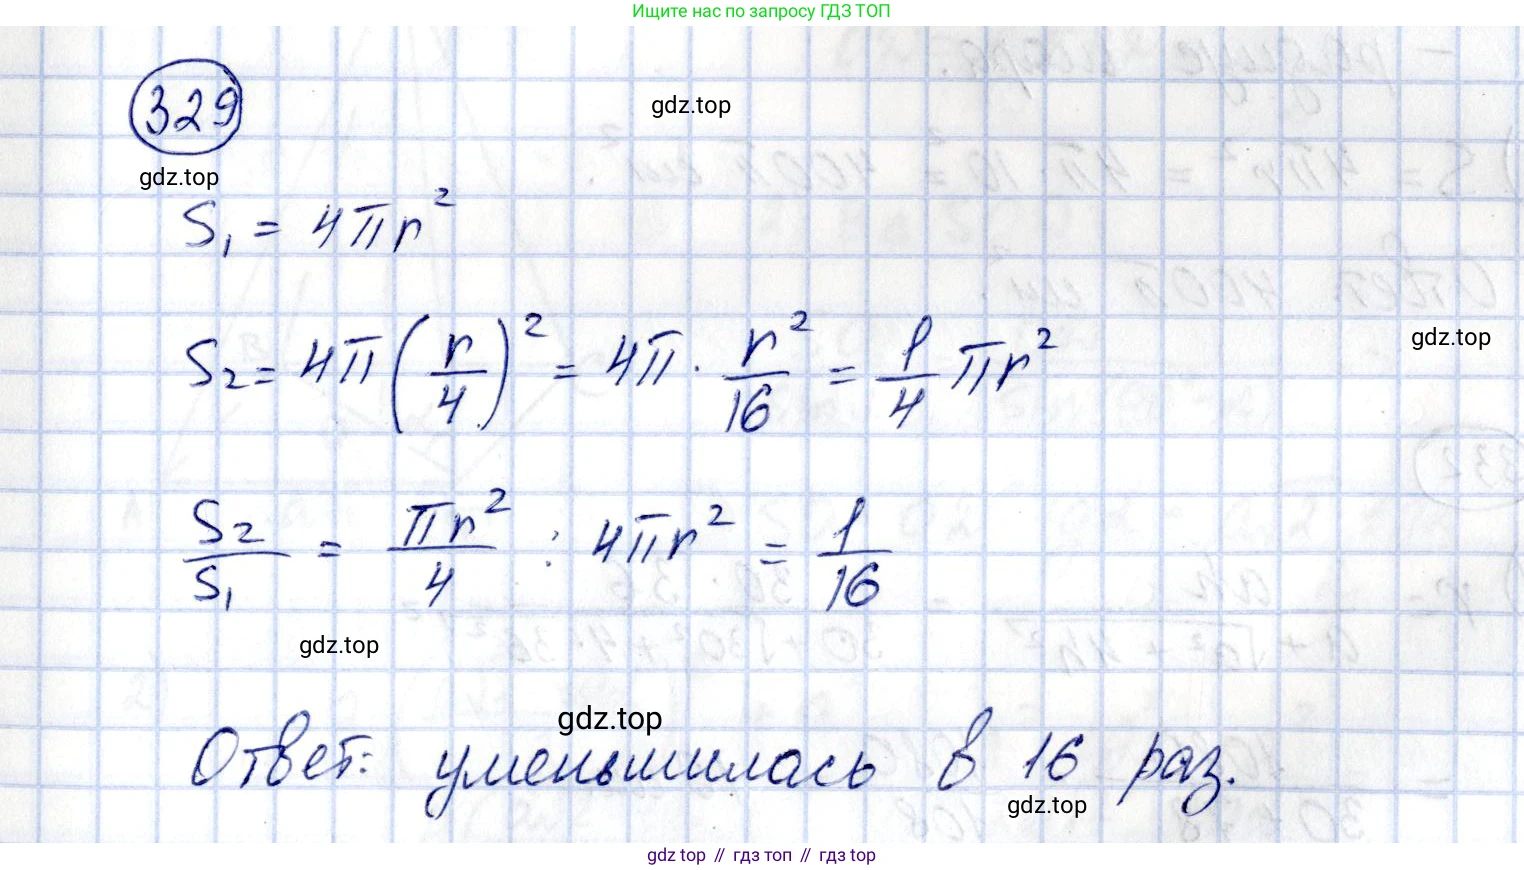 Ищите нас по запросу ГДЗ ТОП
329
gdz.top
gdz.top
S₁ = 4πr²
S₂ = 4π(r/4)² = 4π · r²/16 = 1/4 πr²
gdz.top
S₂/S₁ = πr²/4 : 4πr² = 1/16
gdz.top
gdz.top
Ответ: уменьшилась в 16 раз.
gdz.top
gdz top // гдз топ // гдз top